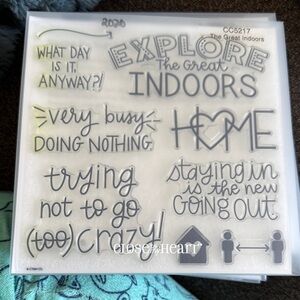 2020
CC5217
The Great Indoors
WHAT DAY
IS IT,
ANYWAY?!
EXPLORE
the Great
INDOORS
very busy
DOING NOTHING
HOME
trying
not to go
(too) crazy!
staying in
is the new
GOING OUT
CLOSE TO MY HEART